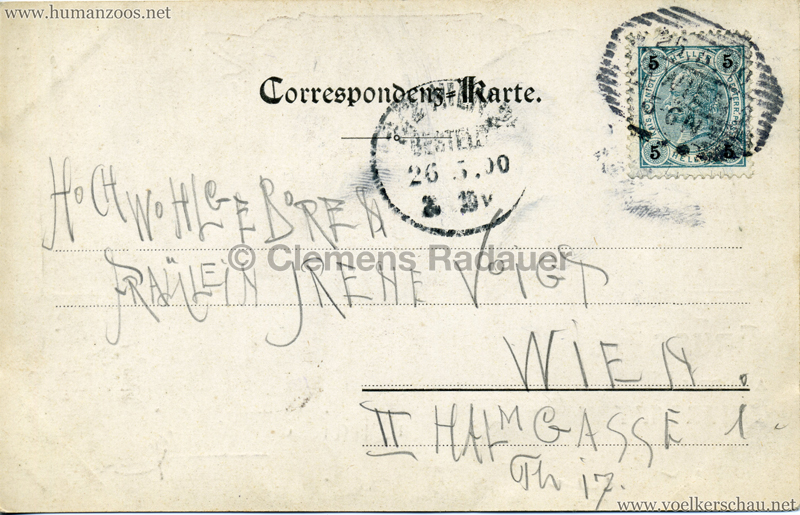 www.humanzoos.net
5 5
Correspondenz-Karte.
BESTELLT
26 5.00
HOCHWOHLGEBOREN
© Clemens Radauer
FRÄULEIN IRENE VOIGT
WIEN.
II HALMGASSE 1
Th 17.
5 5
www.voelkerschau.net